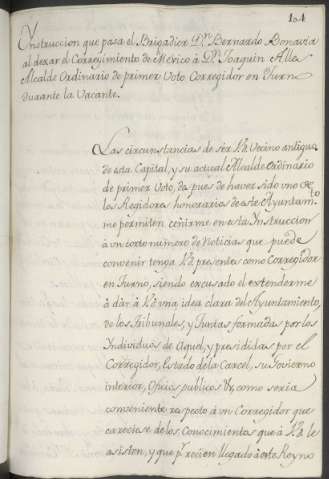 101
Ynstruccion que pasa el Brigadier Dn. Bernardo Bonavia
al dexar el Corregimiento de Mexico à Dn. Joaquin Alles
Alcalde Ordinario de primer Voto Corregidor en Turno
durante la Vacante.
Las circunstancias de ser Vd. Vecino antiguo
de esta Capital, y su actual Alcalde Ordinario
de primer Voto, despues de haver sido vno de
los Regidores honorarios de este Ayuntamto.
me permiten ceñirme en esta Ynstruccion
à vn corto numero de Noticias que puede
convenir tenga Vd. presente como Corregidor
en Turno, siendo excusado el extenderme
à dàr à Vd. vna idea clara del Ayuntamiento,
de los Tribunales, y Juntas formadas por los
Yndividuos de aquel, y presididas por el
Corregidor, Estado de la Carcel, su Govierno
interior, Oficios publicos &c, como seria
conveniente respecto à vn Corregidor que
careciese de los Conocimientos que à Vd. le
asisten, y que pr. recien llegado à este Reyno